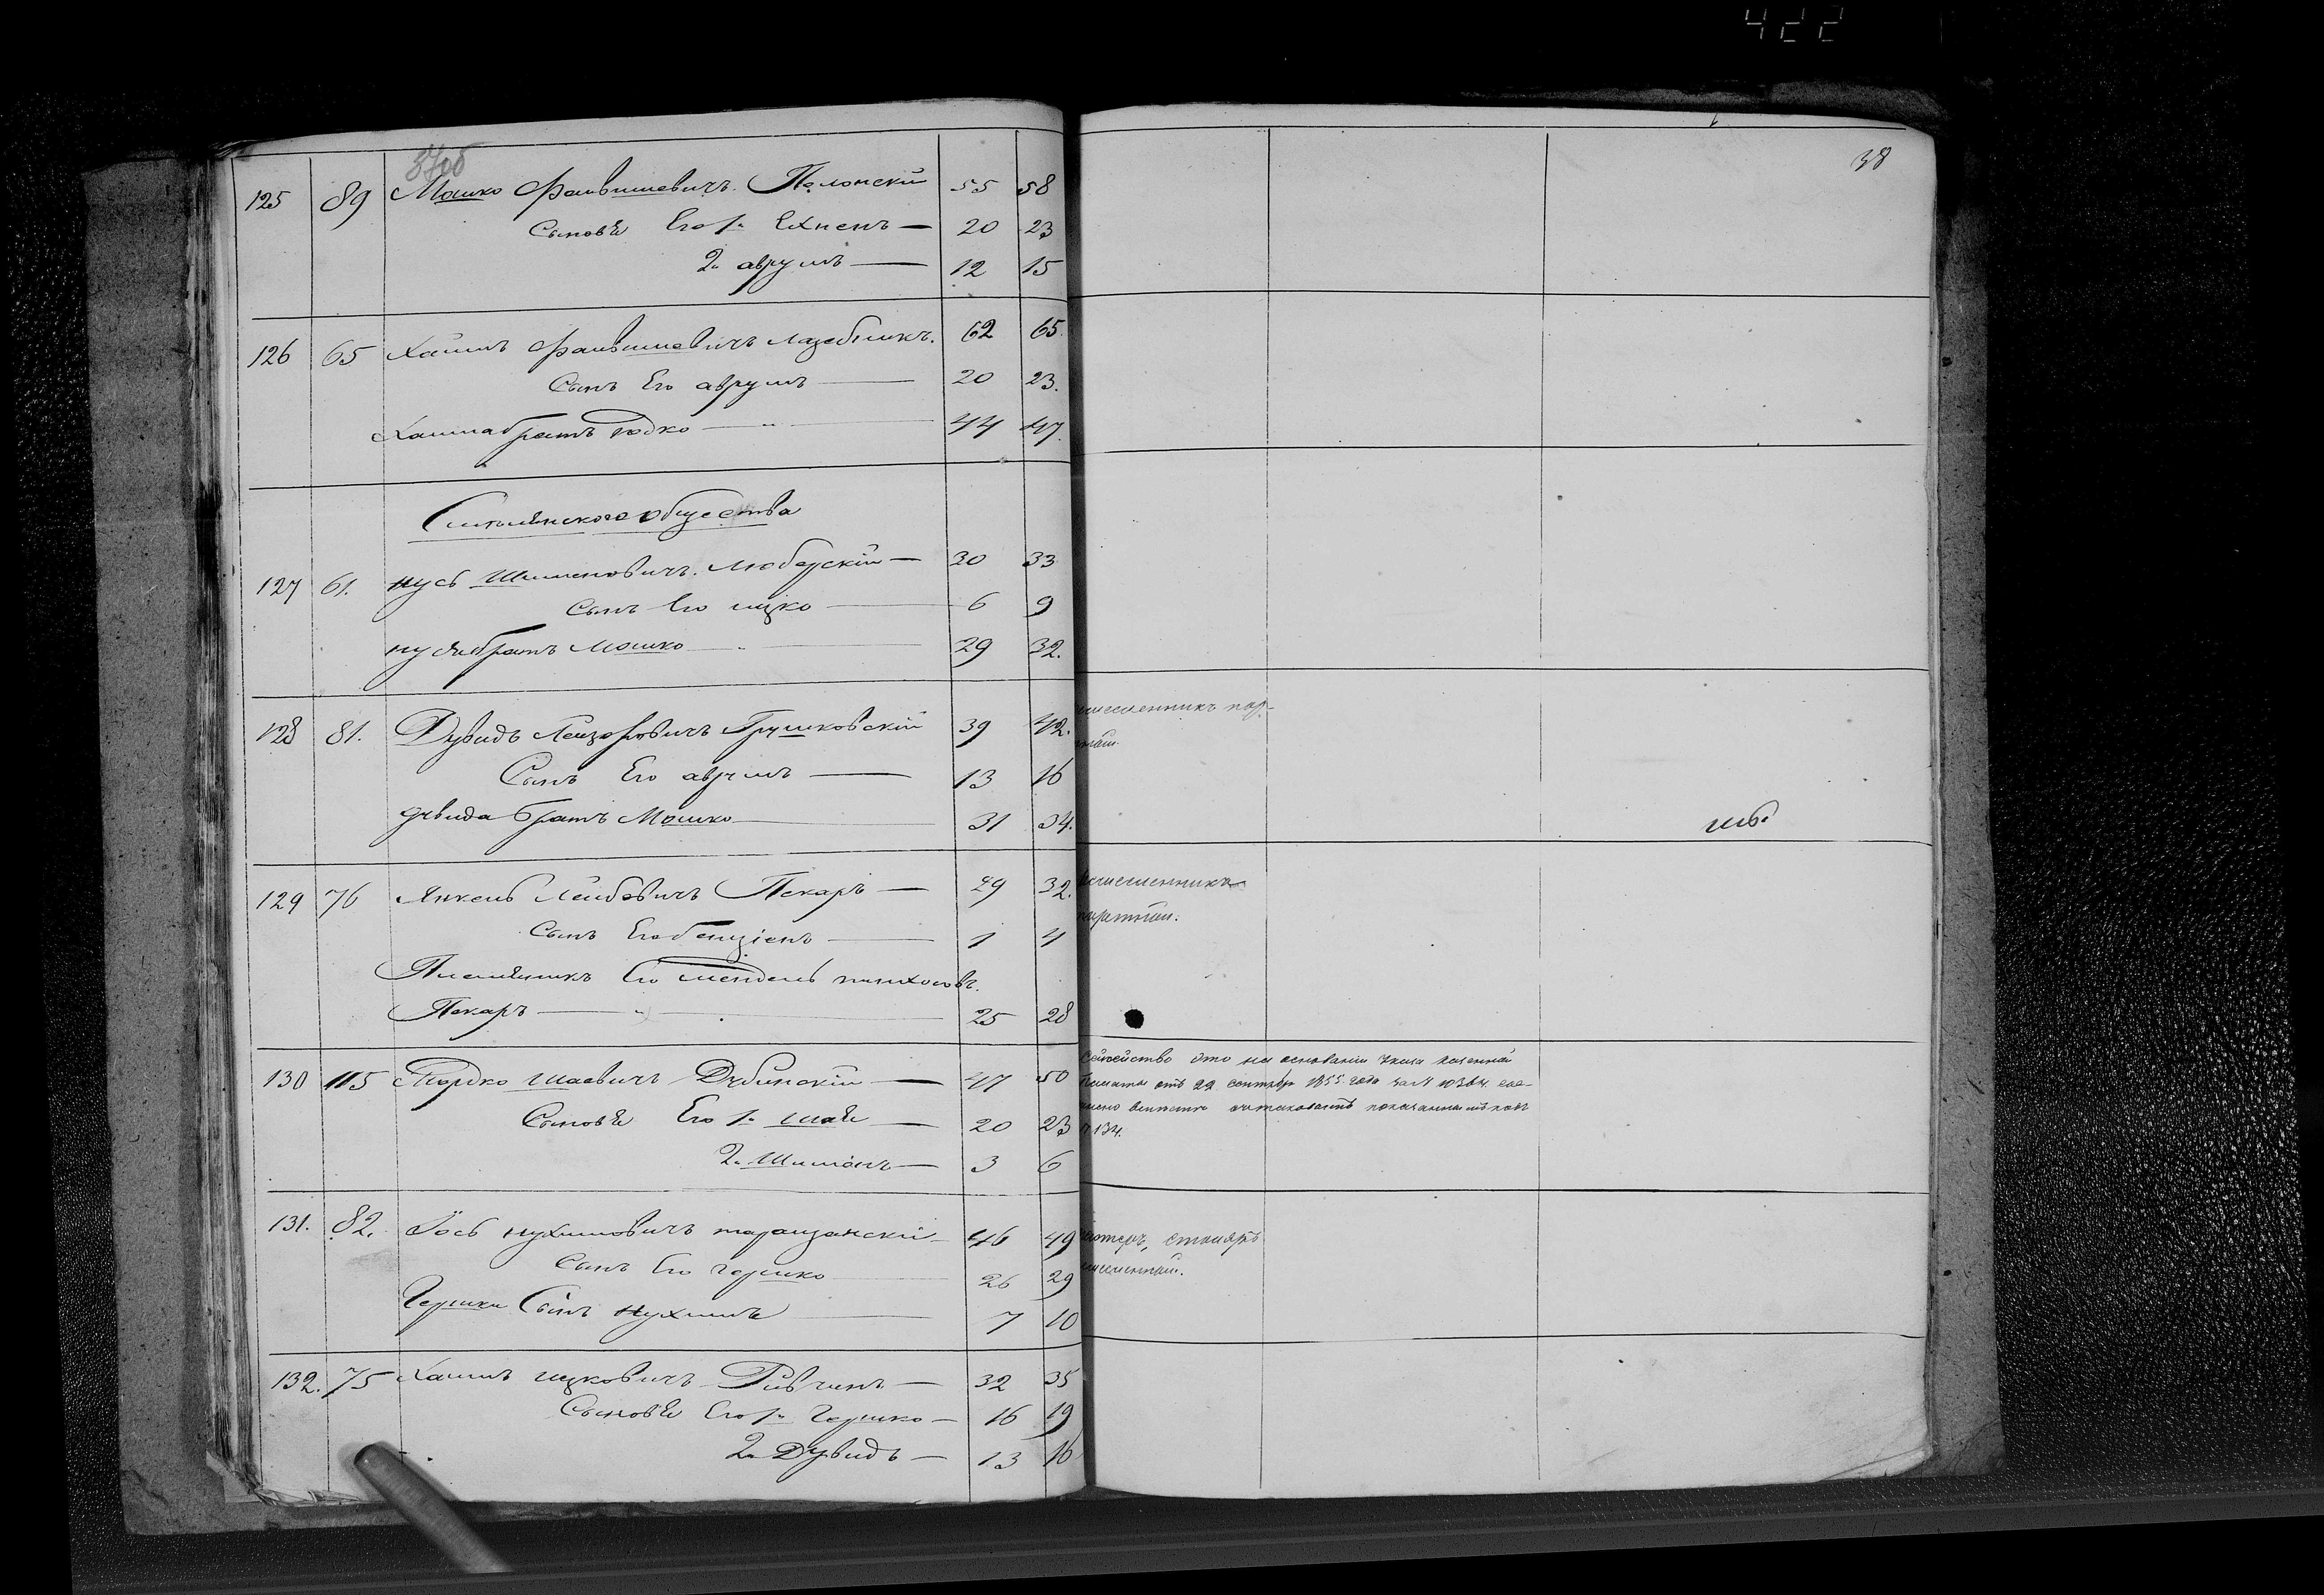 422
37об
125 89 Мошко Фаивишевичъ Полонскій 55 58
Сыновья Его 1. Ехненъ 20 23
2. аврумъ 12 15
126 65 Хаимъ Фаивишевичъ Лазебникъ. 62 65.
Сынъ Его аврумъ 20 23.
Хаима братъ Юдко 44 47.
общества
127 61. нусь Шимоновичъ Любарскій 30 33
Сынъ Его ицко 6 9
нуся братъ Мошко 29 32.
128 81. Дувидъ Лейзоровичъ Грушковскій 39 42.
Сынъ Его аврумъ 13 16
дувида братъ Мошко 31 34.
129 76 Янкель Лейбовичъ Пекаръ 29 32.
Сынъ Его бенціенъ 1 4
Племянникъ Его мендель пинхосовъ.
Пекаръ 25 28
130 115 Мордко шаевичъ Дубинскій 47 50
Сыновья Его 1. шая 20 23
2. Шимонъ 3 6
131. 82. Іось нухимовичъ таращанскій 46 49
Сынъ Его Гершко 26 29
Гершки Сынъ нухимъ 7 10
132. 75 Хаимъ ицковичъ Ривчинъ 32 35
Сыновья Его 1. Гершко 16 19
2. Дувидъ 13 16
38
портной.
Семейство это на основаніи Указа Казенной
Палаты отъ 22 сентября 1855 года за №
134.
столяръ